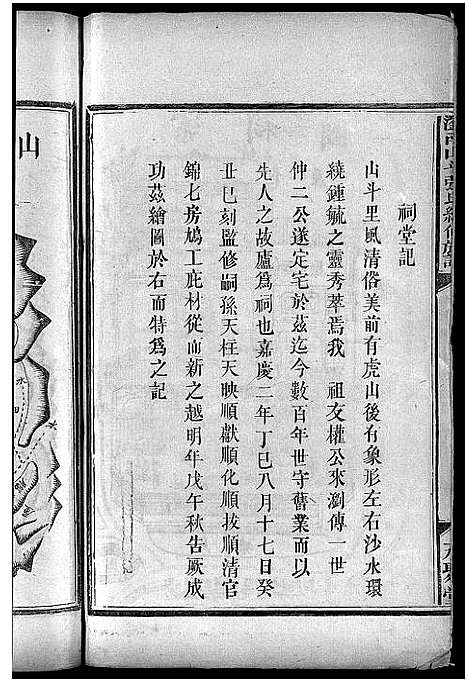 祠堂記
山斗里風清俗美前有虎山後有象形左右沙水環
繞鍾毓之靈秀萃焉我 祖友權公來瀏傳一世
仲二公遂定宅於茲迄今數百年世守舊業而以
先人之故廬爲祠也嘉慶二年丁巳八月十七日癸
丑巳刻監修嗣孫天柱天映順獻順化順拔順清官
錦七房鳩工庇材從而新之越明年戊午秋告厥成
功茲繪圖於右而特爲之記
山
水